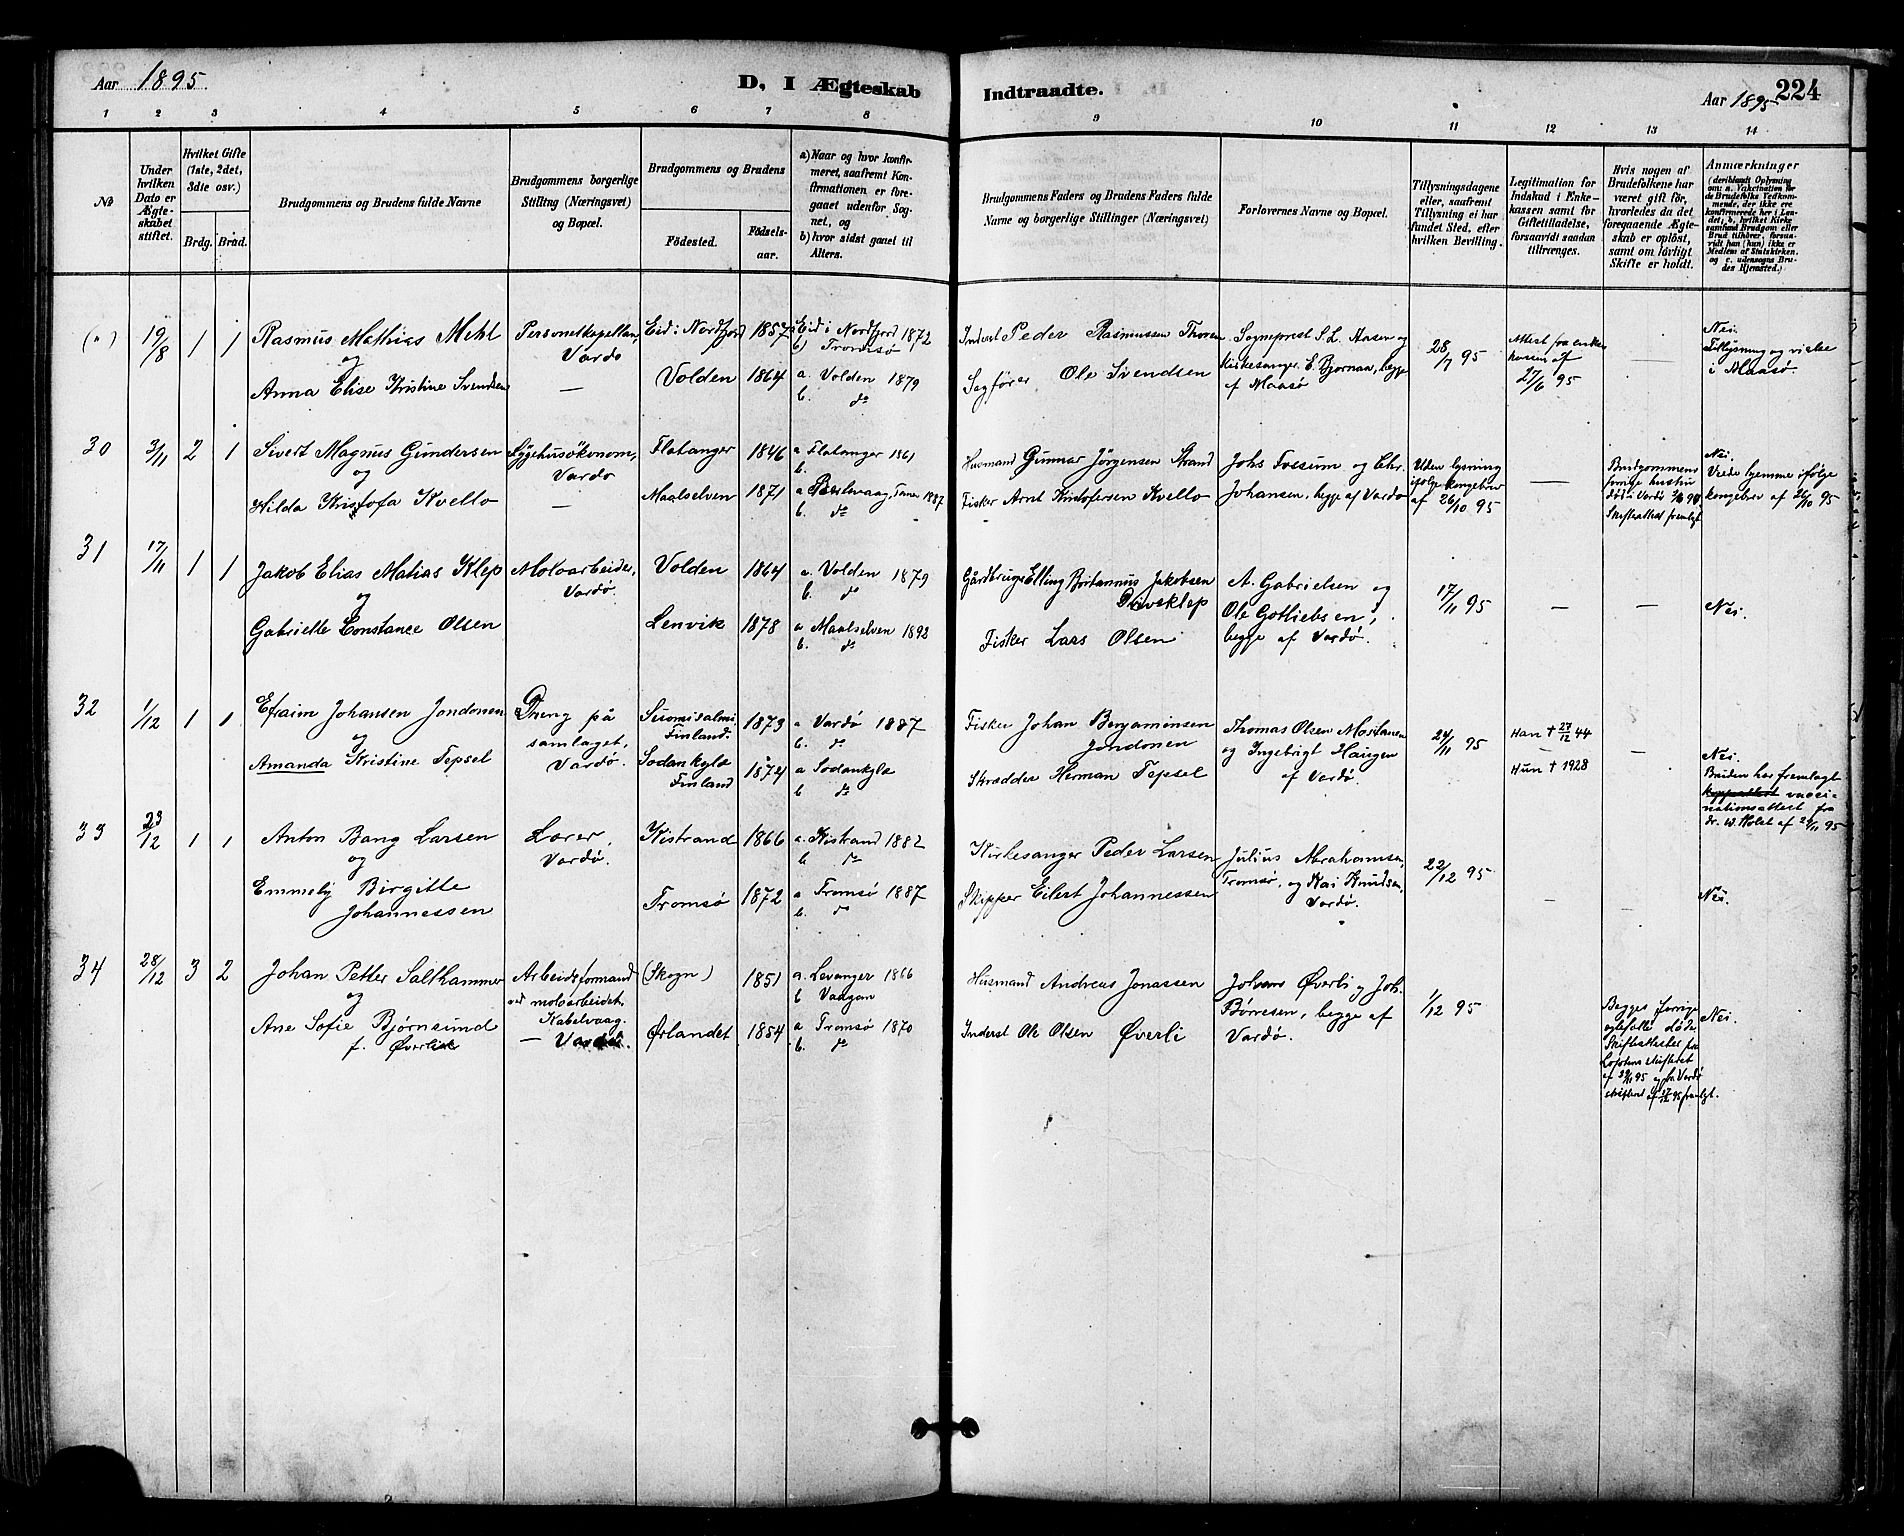 Aar 1895.
D, I Ægteskab
Indtraadte.
224
Aar 1895
1 2 3 4 5 6 7 8 9 10 11 12 13 14
No
Under hvilken Dato er Ægteskabet stiftet.
Hvilket Gifte (1ste, 2det, 3die osv.)
Brdg. Brud.
Brudgommens og Brudens fulde Navne
Brudgommens borgerlige Stilling (Næringsvei) og Bopæl.
Brudgommens og Brudens
Fødested.
Fødselsaar.
a) Naar og hvor konfirmeret, saafremt Konfirmationen er foregaaet udenfor Sognet, og
b) hvor sidst gaaet til Alters.
Brudgommens Faders og Brudens Faders fulde Navne og borgerlige Stillinger (Næringsvei)
Forlovernes Navne og Bopæl.
Tillysningsdagene eller, saafremt Tillysning ei har fundet Sted, efter hvilken Bevilling.
Legitimation for Indskud i Enkekassen samt for Giftetilladelse, forsaavidt saadan tiltrænges.
Hvis nogen af Brudefolkene har været gift før, hvorledes da det foregaaende Ægteskab er opløst, samt om lovligt Skifte er holdt.
Anmærkninger (deriblandt Oplysning om: a. Vakcination for de Brudefolks Vedkommende, der ikke ere konfirmerede her i Landet; b. hvilket Kirkesamfund Brudgom eller Brud tilhører, forsaavidt han (hun) ikke er Medlem af Statskirken, og c. udensogns Brudes Hjemsted.)
(") 19/8 1 1
Rasmus Mathias Mehl
og
Anna Elise Kristine Svendsen
Personelkapellan, Vardø
—
Eid i Nordfjord 1857
Volden 1864
a) Eid i Nordfjord 1872
b) Tromsø
a. Volden 1879
b. do
Inderst Peder Rasmussen Thoren
Sagfører Ole Svendsen
Sogneprest S. L. Aasen og
Kirkesanger E. Bjørnaa, begge
af Maasø
28/7 95
Attest fra enkekassen af
27/6 95
—
Nei.
Tillysning og vielse
i Maasø.
30 3/11 2 1
Sivert Magnus Gundersen
og
Hilda Kristofa Kvello
Sygehusøkonom, Vardø
—
Flatanger 1846
Maalselven 1871
a Flatanger 1861
b.
a Berlevaag, Tanen 1887
b. do
Husmand Gunnar Jørgensen Strand
Fisker Arnt Kristofersen Kvello
Johs Fossum og Chr.
Johansen, begge af Vardø
Uden lysning
ifølge kongebrev
af 26/10 95
—
Brudgommens
forrige hustru
død i Vardø
Skifteattest fremlagt
Nei.
Viede hjemme ifølge
kongebrev af 26/10 95
31 17/11 1 1
Jakob Elias Matias Klep
og
Gabrielle Constance Olsen
Moloarbeider, Vardø.
Volden 1864
Lenvik 1878
a. Volden 1879
b. do
a Maalselven 1892
b. do
Gårdbruger Elling Britannus Jakobsen
Driveklep
Fisker Lars Olsen
A. Gabrielsen og
Ole Gotliebsen,
begge af Vardø.
17/11 95
—
—
Nei.
32 1/12 1 1
Efraim Johansen Jondonen
og
Amanda Kristine Tepsel
Dreng på
samlaget,
Vardø.
Suomisalmi, Finland. 1873
Sodankylæ Finland 1874
a Vardø 1887
b. do
a Sodankylæ
b do
Fisker Johan Benjaminsen
Jondonen
Skrædder Herman Tepsel
Thomas Olsen Mortensen
og Ingebrigt Haugen
af Vardø.
24/11 95
Han † 27/12 44
—
Hun † 1928
—
Nei.
Bruden har fremlagt
vaccinationsattest fra
dr. W. Holst af 29/11 95
33 23/12 1 1
Anton Bang Larsen
og
Emmely Birgitte
Johannessen
Lærer,
Vardø.
Kistrand 1866
Tromsø 1872
a. Kistrand 1882
b do
a Tromsø 1887
b. do
Kirkesanger Peder Larsen
Skipper Eilert Johannessen
Julius Abrahamsen,
Tromsø, og Kai Knudsen,
Vardø.
22/12 95
—
—
Nei.
34 28/12 3 2
Johan Petter Salthammer
og
Ane Sofie Bjørnsund
f. Øverli
Arbeidsformand
ved moloarbeidet,
Kabelvaag.
— Vardø.
(Skogn) 1851
Ørlandet 1854
a. Levanger 1866
b Vaagan
a Tromsø 1870
b. do
Husmand Andreas Jonassen
Inderst Ole Olsen Øverli
Johans Øverli og Joh.
Børresen, begge af
Vardø.
1/12 95
Begges forrige
egtefolk døde.
Skifteattester fra
Lofotens skifteret
af 29/11 95 og fra Vardø
skifteret af 17/12 95 fremlagt.
Nei.